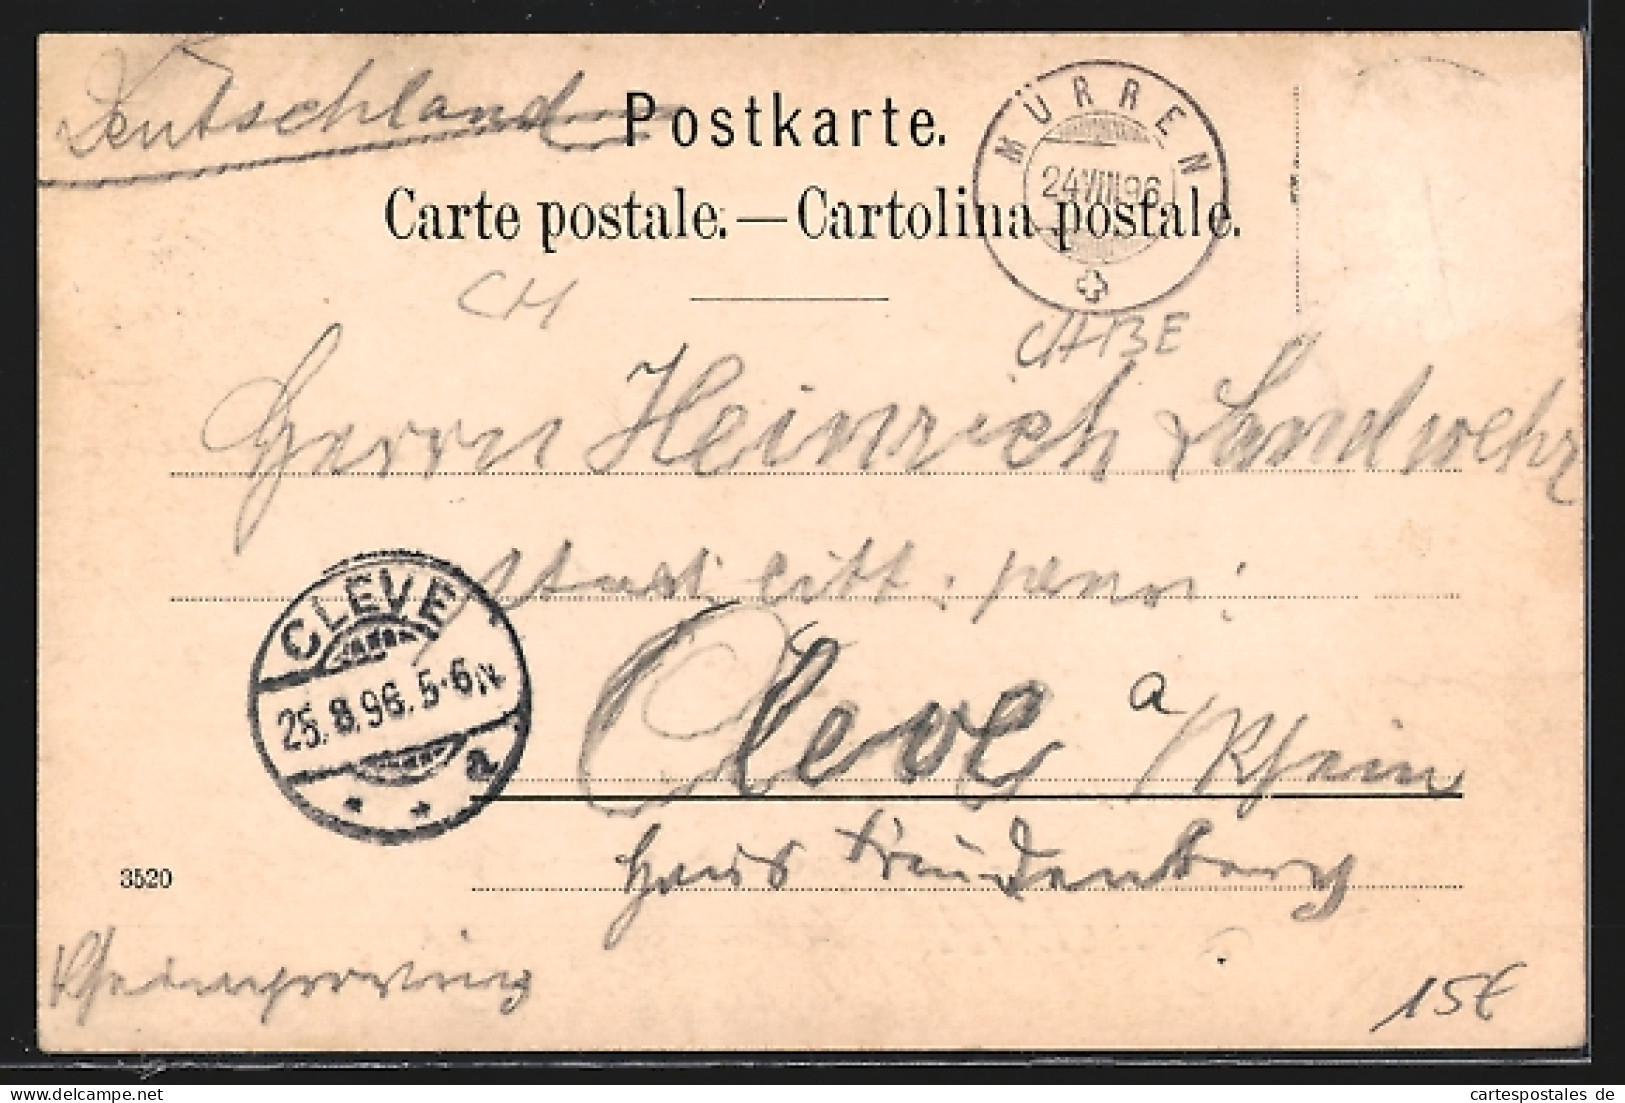 Deutschland
Postkarte.
Carte postale. — Cartolina postale.
MÜRREN
24 VIII 96
CH
CH BE
Herrn Heinrich Landwehr
Cleve a/Rhein
Haus Freudenberg
CLEVE
25.8.96. 5-6N
a
* *
3520
Rheinprovinz
15€
cartespostales de